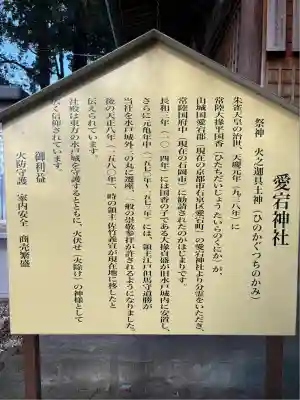 愛宕神社
祭神　火之迦具土神（ひのかぐつちのかみ）
朱雀天皇の治世、天慶元年（九三八年）に
常陸大掾平国香（ひたちだいじょうたいらのくにか）が、
山城国愛宕郡（現在の京都市右京区愛宕町）の愛宕神社より分霊をいただき、
常陸国府中（現在の石岡市）に勧請されたのがはじまりです。
長和三年（一〇一四年）には国香の子である大掾貞盛が旧水戸城内に安置し、
さらに元亀年中（一五七〇年～一五七一年）には、領主江戸但馬守道勝が
当社を水戸城外三の丸に遷座、一般の崇敬参拝が許されるようになりました。
後の天正八年（一五八〇年）、時の領主佐竹義宣が現在地に移したと
伝えられています。
社殿は東方の水戸城を守護するとともに、火伏せ（火除け）の神様として
広く信仰されています。
御利益
火防守護　家内安全　商売繁盛